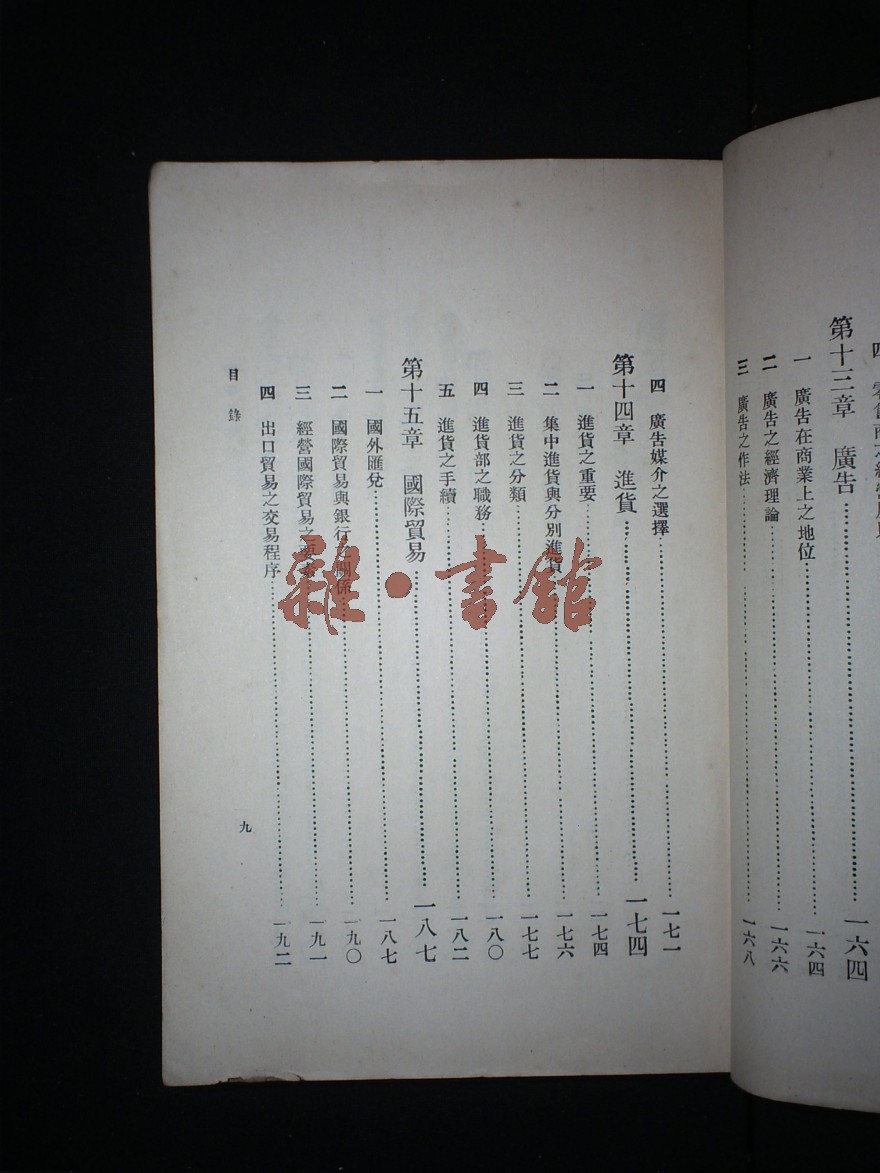 第十三章 廣告……一六四
一 廣告在商業上之地位……一六四
二 廣告之經濟理論……一六六
三 廣告之作法……一六八
四 廣告媒介之選擇……一七一
第十四章 進貨……一七四
一 進貨之重要……一七四
二 集中進貨與分別進貨……一七六
三 進貨之分類……一七七
四 進貨部之職務……一八〇
五 進貨之手續……一八二
第十五章 國際貿易……一八七
一 國外匯兌……一八七
二 國際貿易與銀行之關係……一九〇
三 經營國際貿易之要……一九一
四 出口貿易之交易程序……一九二
目錄
九
雜·書館